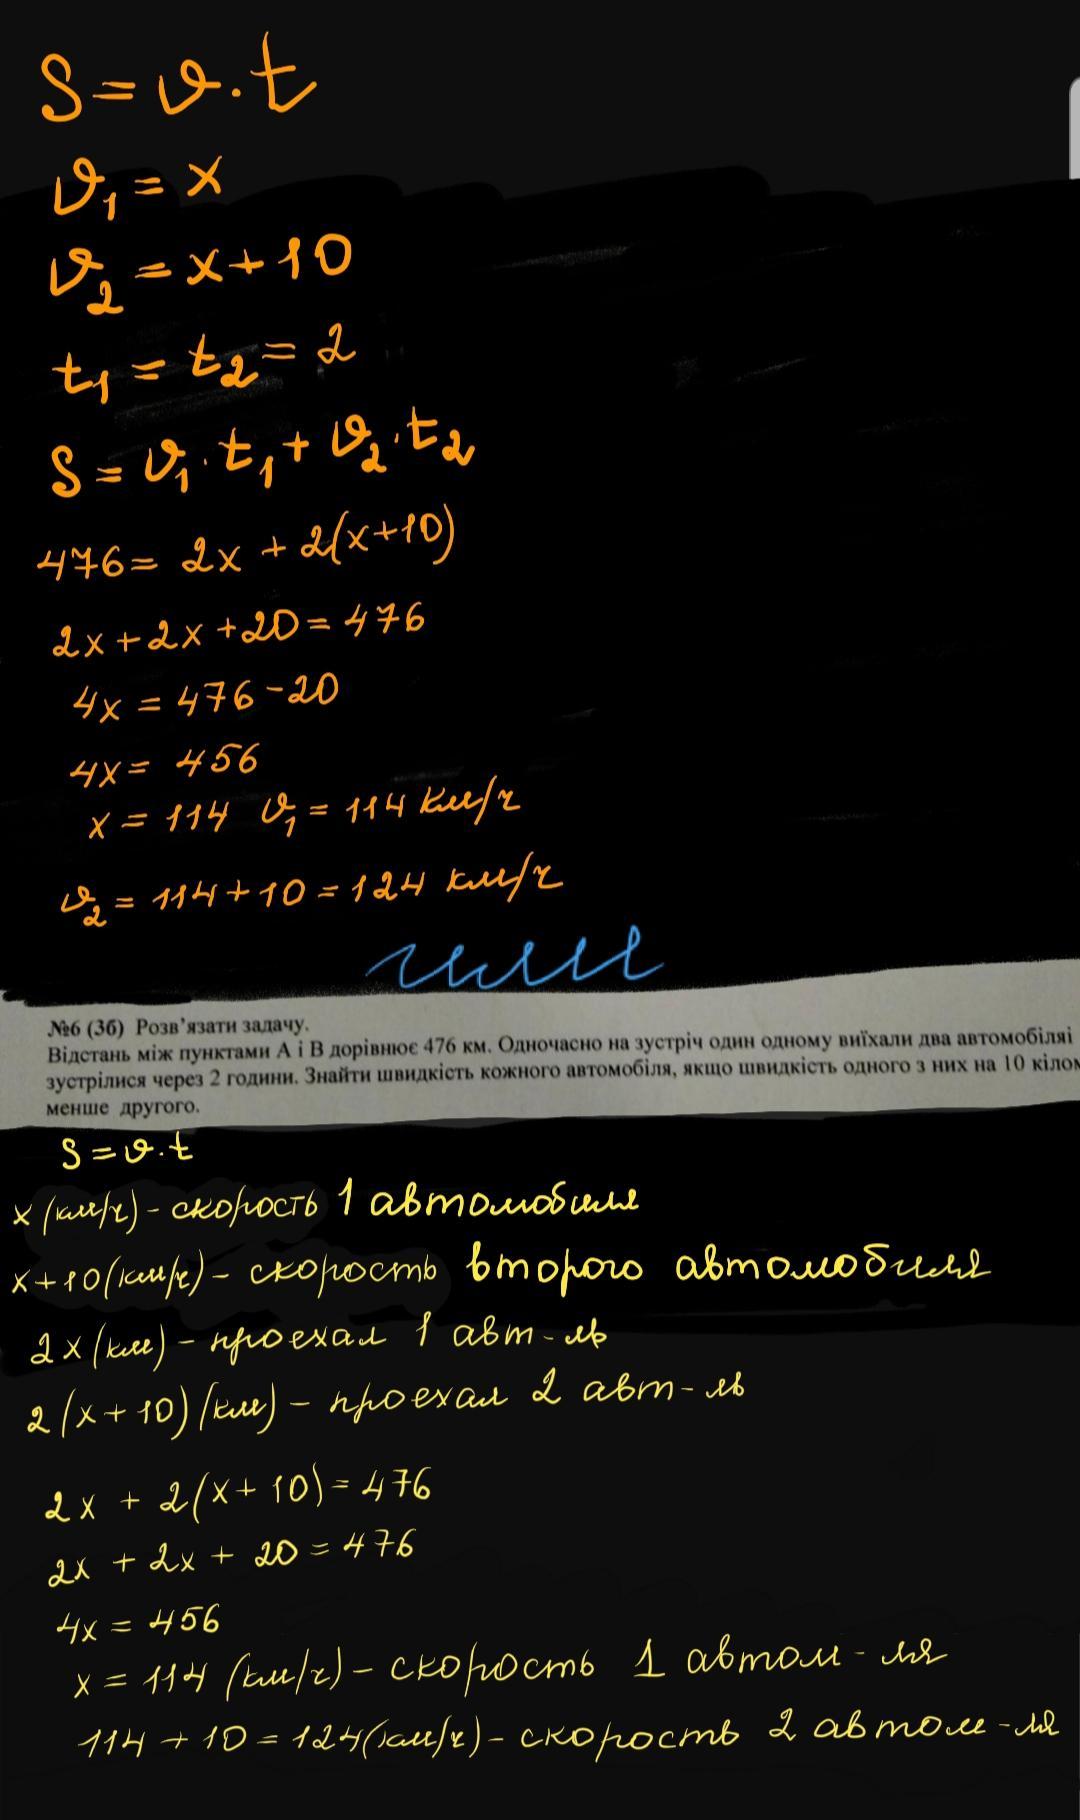 S = v · t
v₁ = x
v₂ = x + 10
t₁ = t₂ = 2
S = v₁ · t₁ + v₂ · t₂
476 = 2x + 2(x+10)
2x + 2x + 20 = 476
4x = 476 - 20
4x = 456
x = 114 v₁ = 114 км/ч
v₂ = 114 + 10 = 124 км/ч
или
№6 (3б) Розв'язати задачу.
Відстань між пунктами А і В дорівнює 476 км. Одночасно на зустріч один одному виїхали два автомобіляі
зустрілися через 2 години. Знайти швидкість кожного автомобіля, якщо швидкість одного з них на 10 кілом
менше другого.
S = v · t
x (км/ч) - скорость 1 автомобиля
x + 10 (км/ч) - скорость второго автомобиля
2x (км) - проехал 1 авт-ль
2(x + 10) (км) - проехал 2 авт-ль
2x + 2(x + 10) = 476
2x + 2x + 20 = 476
4x = 456
x = 114 (км/ч) - скорость 1 автом-ля
114 + 10 = 124 (км/ч) - скорость 2 автом-ля